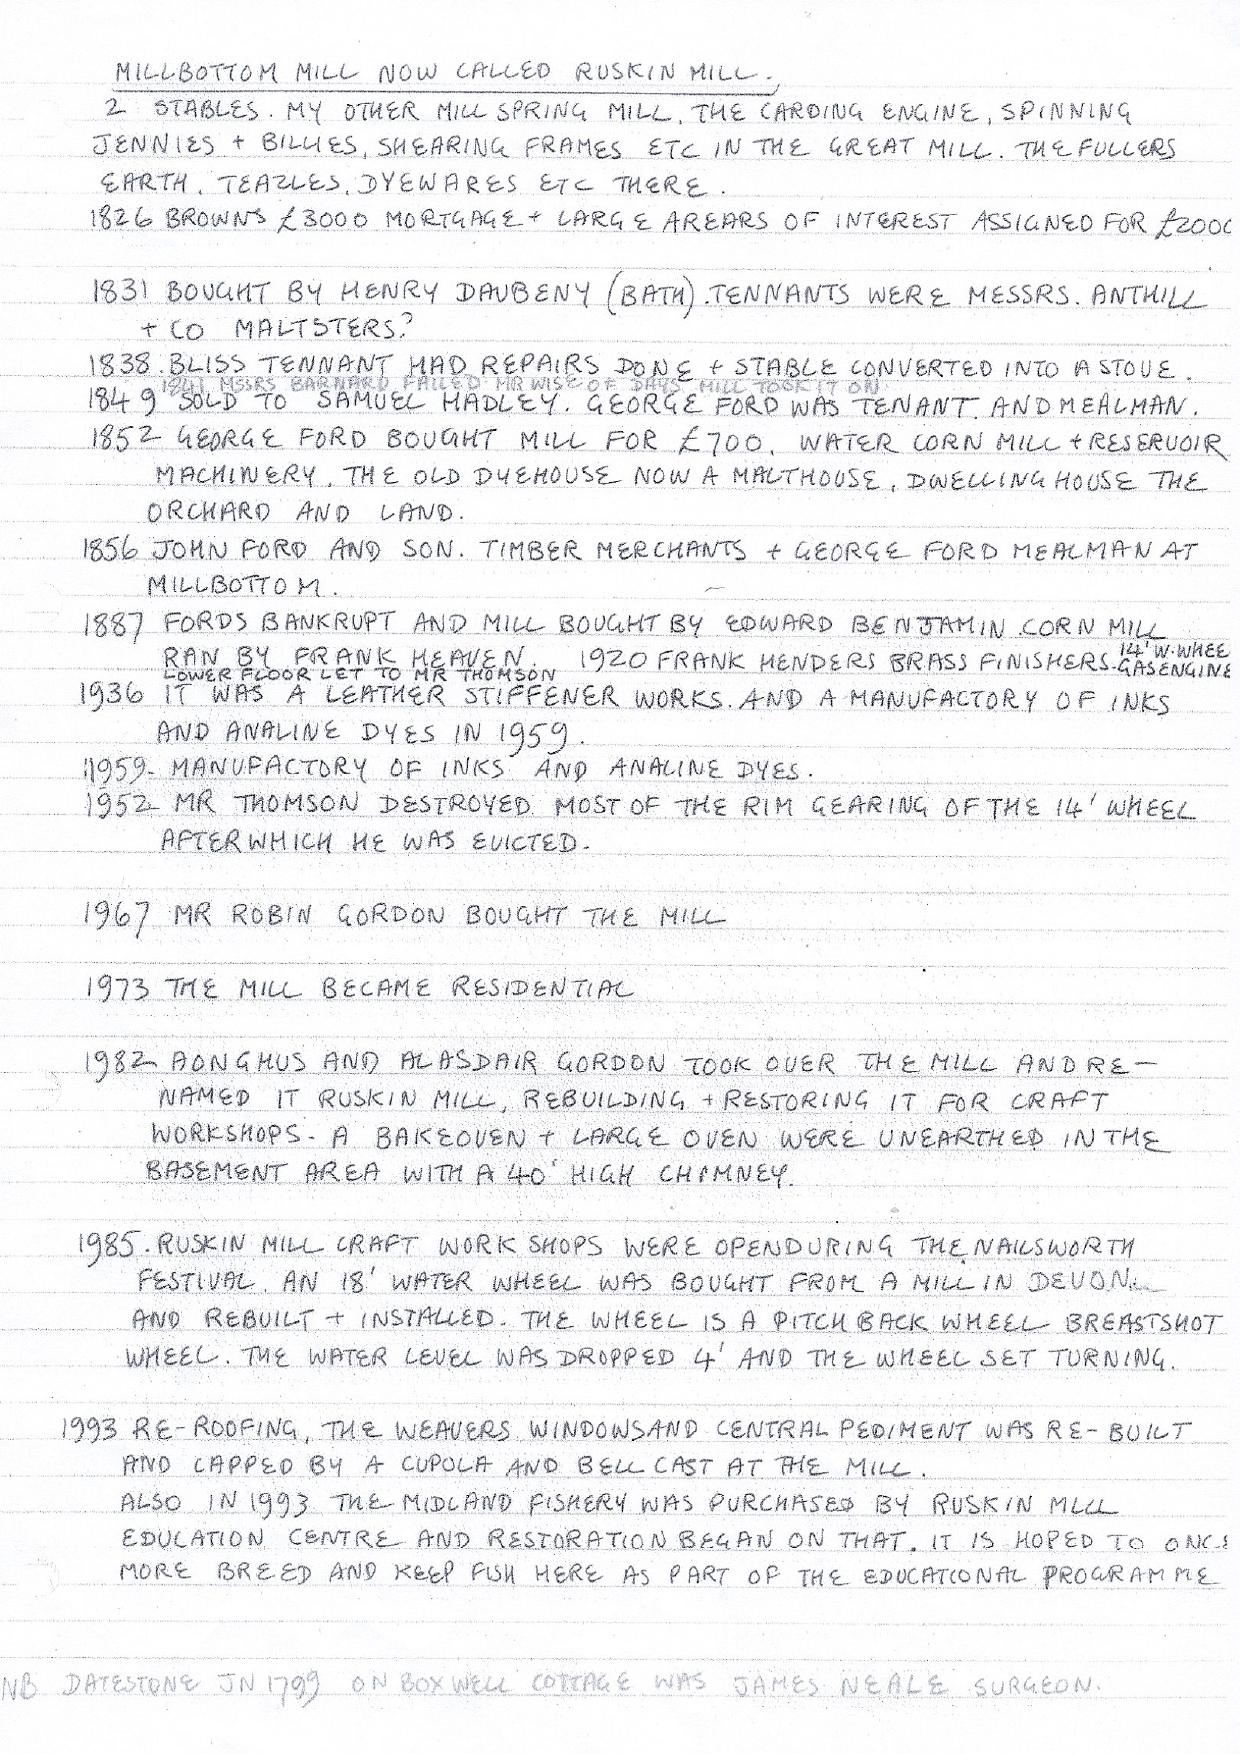 MILLBOTTOM MILL NOW CALLED RUSKIN MILL.
2 STABLES. MY OTHER MILL SPRING MILL, THE CARDING ENGINE, SPINNING
JENNIES + BILLIES, SHEARING FRAMES ETC IN THE GREAT MILL. THE FULLERS
EARTH, TEAZLES, DYEWARES ETC THERE.
1826 BROWNS £3000 MORTGAGE + LARGE AREARS OF INTEREST ASSIGNED FOR £2000
1831 BOUGHT BY HENRY DAUBENY (BATH). TENNANTS WERE MESSRS. ANTHILL
+ CO MALTSTERS?
1838. BLISS TENNANT HAD REPAIRS DONE + STABLE CONVERTED INTO A STOVE.
1841 MSSRS BARNARD FAILED MR WISE OF DAYS MILL TOOK IT ON
1849 SOLD TO SAMUEL HADLEY. GEORGE FORD WAS TENANT AND MEALMAN.
1852 GEORGE FORD BOUGHT MILL FOR £700. WATER CORN MILL + RESERVOIR
MACHINERY. THE OLD DYEHOUSE NOW A MALTHOUSE, DWELLING HOUSE THE
ORCHARD AND LAND.
1856 JOHN FORD AND SON. TIMBER MERCHANTS + GEORGE FORD MEALMAN AT
MILLBOTTOM.
1887 FORDS BANKRUPT AND MILL BOUGHT BY EDWARD BENJAMIN CORN MILL
RAN BY FRANK HEAVEN. 1920 FRANK HENDERS BRASS FINISHERS. 14' W. WHEE
GAS ENGINE
LOWER FLOOR LET TO MR THOMSON
1936 IT WAS A LEATHER STIFFENER WORKS. AND A MANUFACTORY OF INKS
AND ANALINE DYES IN 1959.
1959- MANUFACTORY OF INKS AND ANALINE DYES.
1952 MR THOMSON DESTROYED MOST OF THE RIM GEARING OF THE 14' WHEEL
AFTER WHICH HE WAS EVICTED.
1967 MR ROBIN GORDON BOUGHT THE MILL
1973 THE MILL BECAME RESIDENTIAL
1982 AONGHUS AND ALASDAIR GORDON TOOK OVER THE MILL AND RE-
NAMED IT RUSKIN MILL, REBUILDING + RESTORING IT FOR CRAFT
WORKSHOPS. A BAKEOVEN + LARGE OVEN WERE UNEARTHED IN THE
BASEMENT AREA WITH A 40' HIGH CHIMNEY.
1985. RUSKIN MILL CRAFT WORK SHOPS WERE OPEN DURING THE NAILSWORTH
FESTIVAL. AN 18' WATER WHEEL WAS BOUGHT FROM A MILL IN DEVON.
AND REBUILT + INSTALLED. THE WHEEL IS A PITCH BACK WHEEL BREASTSHOT
WHEEL. THE WATER LEVEL WAS DROPPED 4' AND THE WHEEL SET TURNING.
1993 RE-ROOFING, THE WEAVERS WINDOWS AND CENTRAL PEDIMENT WAS RE-BUILT
AND CAPPED BY A CUPOLA AND BELL CAST AT THE MILL.
ALSO IN 1993 THE MIDLAND FISHERY WAS PURCHASED BY RUSKIN MILL
EDUCATION CENTRE AND RESTORATION BEGAN ON THAT. IT IS HOPED TO ONCE
MORE BREED AND KEEP FISH HERE AS PART OF THE EDUCATIONAL PROGRAMME
NB DATESTONE JN 1799 ON BOXWELL COTTAGE WAS JAMES NEALE SURGEON.